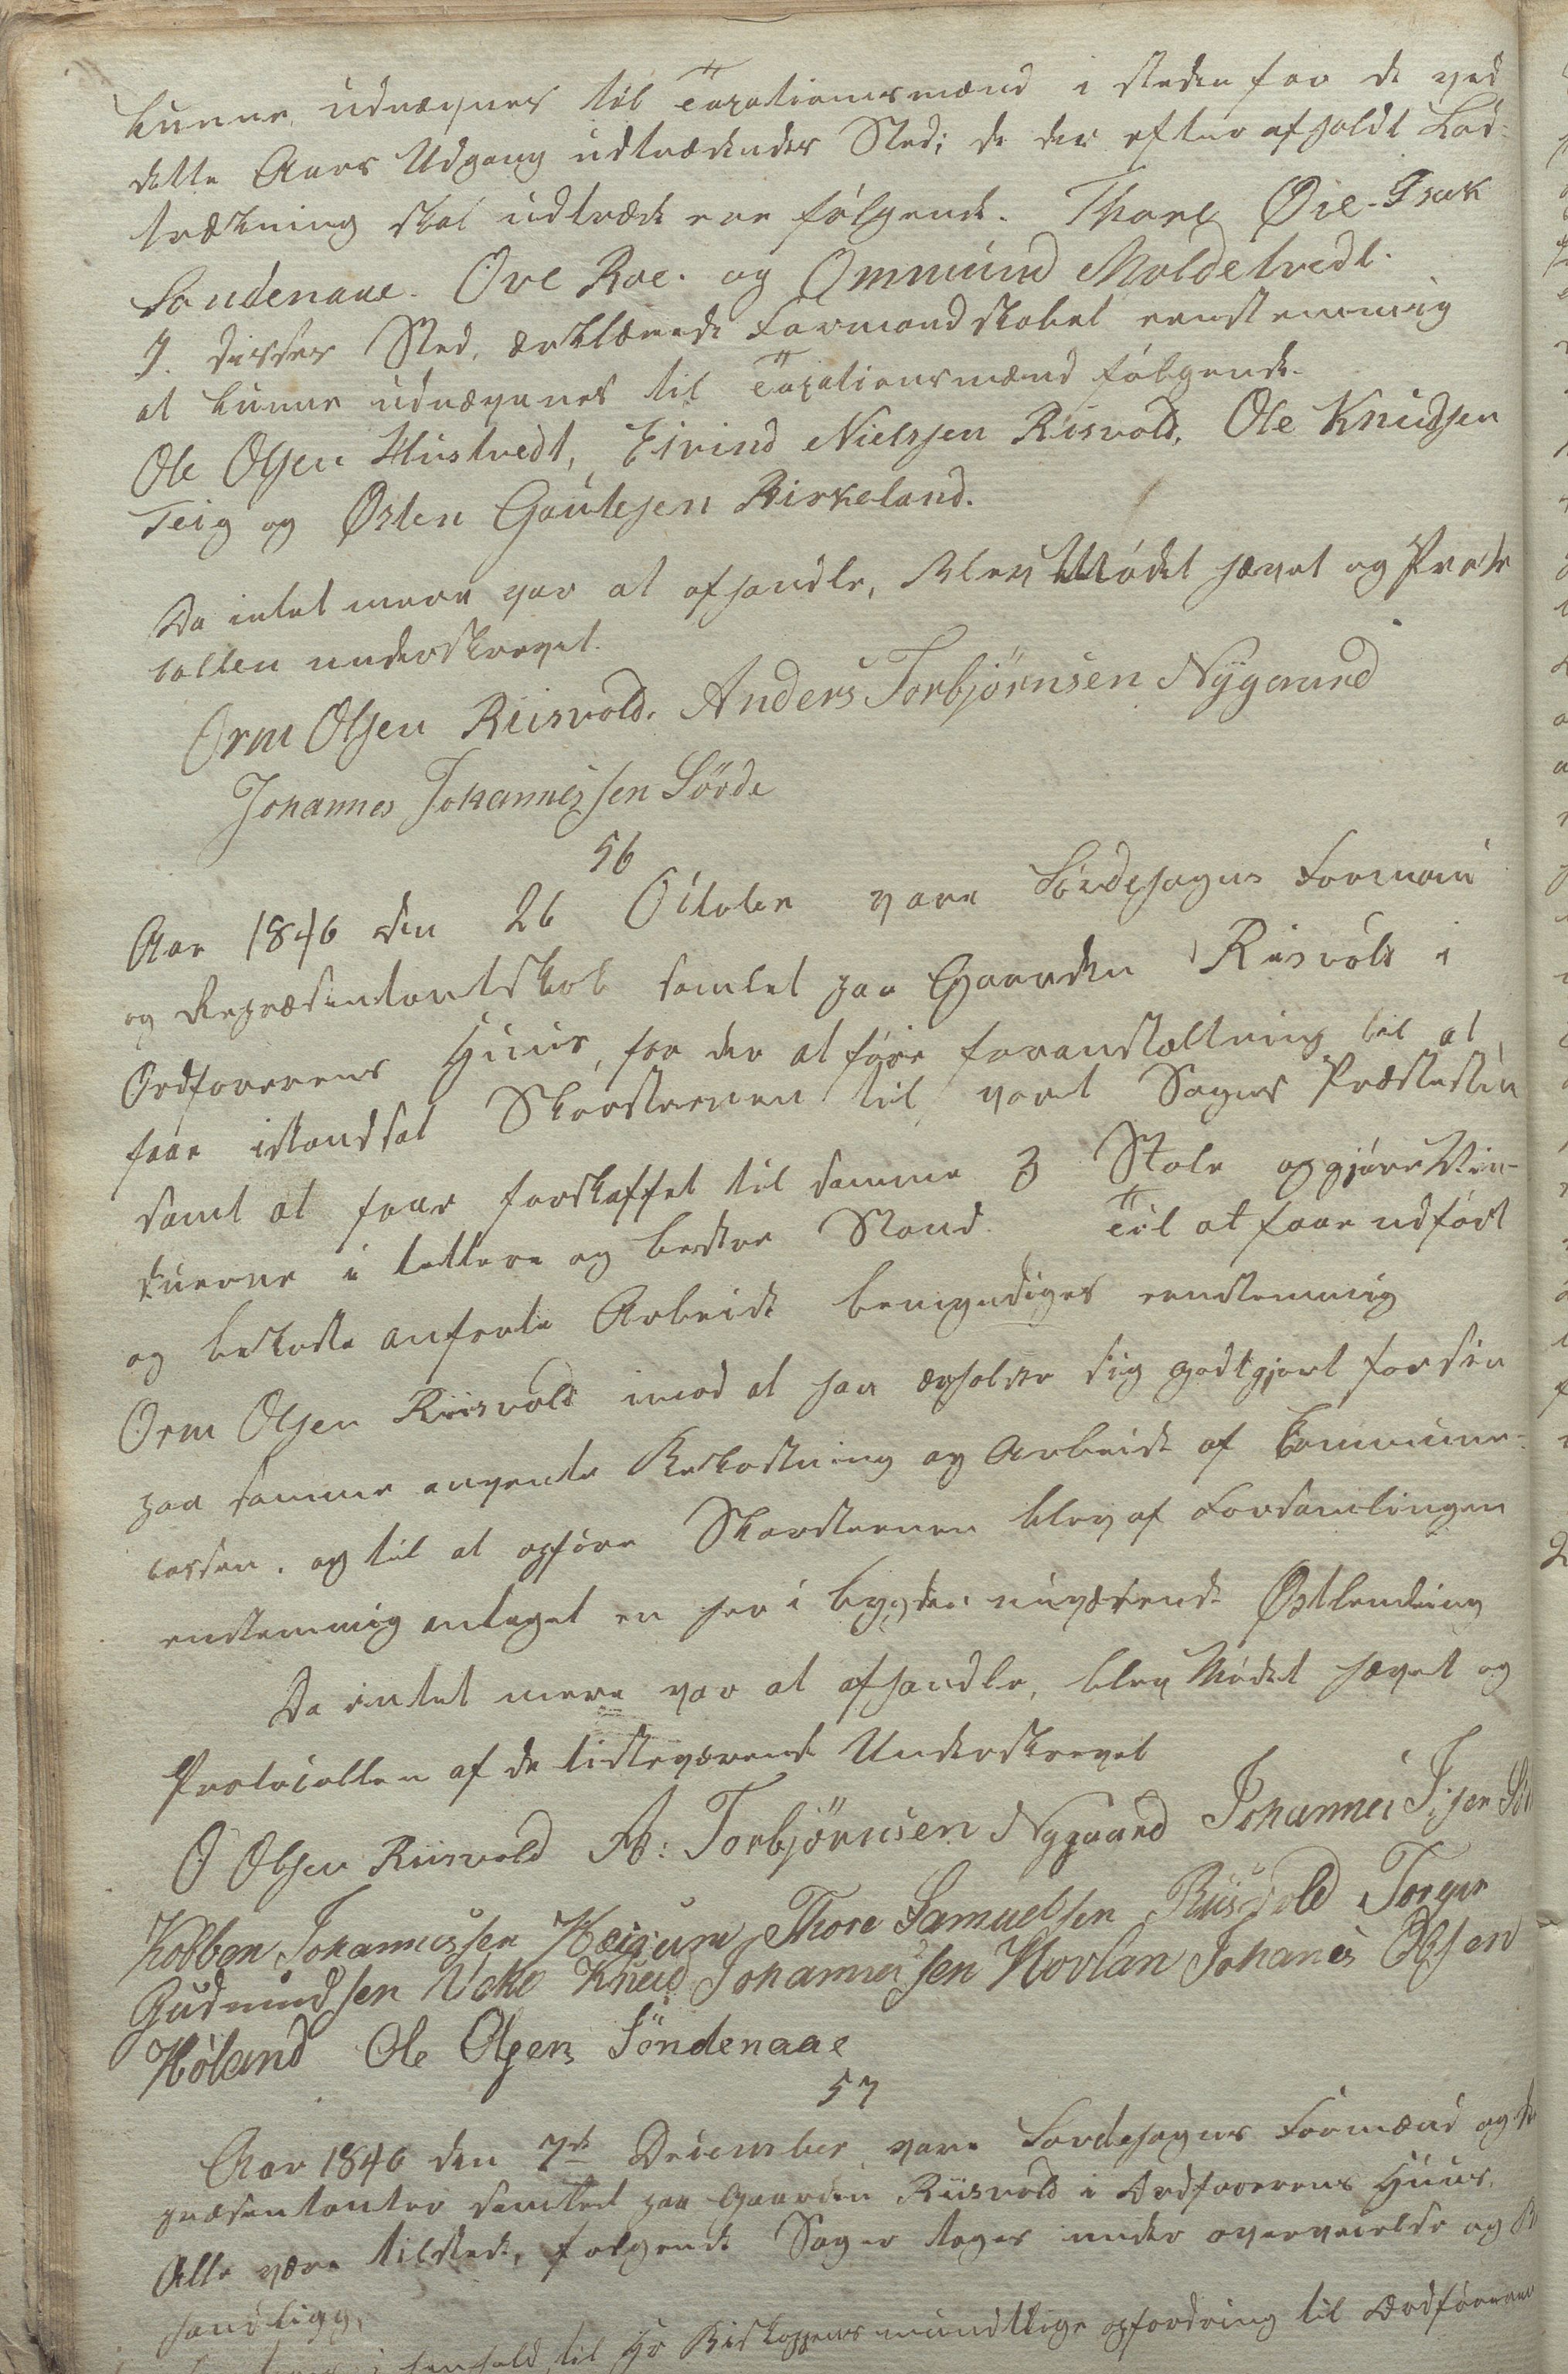 kunne udnævnes til Taxationsmænd i steden for de ved
dette Aars Udgang udtrædendes Sted; de der efter afholdt Lod-
trækning skal udtræde ere følgende. Thore Øie - Isak
Sondenaae. Ove Roe. og Ommund Moldetvedt.
I disses Sted, erklærede Formandskabet eenstemmig
at kunne udnævnes til Taxationsmænd følgende.
Ole Olsen Hustvedt, Eivind Nielssen Risvold, Ole Knudsen
Teig og Østen Gautesen Birkeland.
Da intet mere var at afhandle, blev Mödet hævet og Proto
collen underskrevet.
Orm Olsen Riisvold. Anders Torbjörnsen Nÿgaard
Johannes Johannessen Sörde
56
Aar 1846 den 26 October vare Sördesogns Formænd
og Repræsentantskab samlet paa Gaarden Risvold i
Ordforerens Huus, for der at föie foranstaltning til at
faae istandsat Skorstenen til vort Sogns Præstestu
samt at faae forskaffet til samme 3 Stole og gjøre Vin-
duerne i tettere og bedre Stand. Til at faae udfört
og bekoste anførte Arbeide bemyndiges eenstemmig
Orm Olsen Riisvold imod at han erholder sig godtgjort for sin
paa samme anvente Bekostning og Arbeide af Commune-
cassen. og til at opføre Skorstenen blev af Forsamlingen
enstemmig antaget en her i bygden nuværende Østlending
Da intet mere var at afhandle, blev Mödet hævet og
Protocollen af de tilsteværende Underskrevet
O Olsen Riisvold A: Torbjörnsen Nygaard Johannes J:sen Sö
Kolben Johannessen Hægum Thore Samuelsen Riisvold Torger
Gudmundsen Knud Johannessen Hovlan Johanes Olsen
Høland Ole Olsen Söndenaae
57
Aar 1846 den 7de December vare Sordesogns Formænd og Re
præsentanter samled paa Gaarden Riisvold i Ordforerens Huus.
Alle vare tilstede, følgende Sager toges under overveielse og B
handling,
i henhold til Hr Biskoppens mundtlige opfordring til Ordföreren